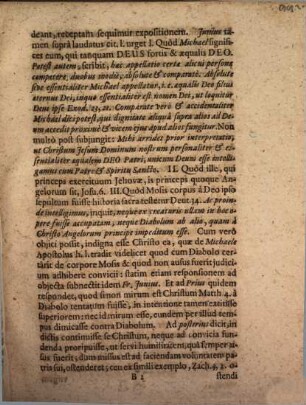 deant, receptam sequimur expositionem. Junius ta-
men supra laudatus cit. l. urget I. Quòd Michael signifi-
cet eum, qui tanquam DEUS fortis & æqualis DEO.
Potest autem, scribit, hac appellatio certæ alicui personæ
competere, duobus modis, absolute & comparatè. Absolute
sive essentialiter Michael appellatur, i. e. æqualis Deo filius
æternus Dei, inque essentialiter est nomen Dei, ut loquitur
Deus ipse Exod. 23, 21. Comparatè verò & accidentaliter
Michael dici potest, qui dignitate aliquâ supra alios ad De-
um accedit proximè & vicem ejus apud alios fungitur. Non
multò post subjungit: Mihi arridet prior interpretatio,
ut Christum Jesum Dominum nostrum personaliter & es-
sentialiter æqualem DEO Patri, unicum Deum esse intelli-
gamus cum Patre & Spiritu Sancto. II. Quòd ille, qui
princeps exercituum Jehovæ, is princeps quoque An-
gelorum sit, Jos. 6. III. Quòd Mosis corpus à Deo ipso
sepultum fuisse historia sacra testetur Deut. 34. Ac proin-
de intelligimus, inquit, neque ex creaturis ullam in hoc o-
pere fuisse occupatam, neque Diabolum ab alio, quam à
Christo Angelorum principe impeditum esse. Cum verò
objici possit, indigna esse Christo ea, quæ de Michaele
Apostolus h. l. tradit videlicet quòd cum Diabolo cer-
târit de corpore Mosis & quòd non ausus fuerit judici-
um adhibere convicii: statim etiam responsionem ad
objecta subnectit idem Fr. Junius. Et ad Prius quidem
respondet, quòd non sit mirum est Christum Matth. 4. à
Diabolo tentatum fuisse, in intentione tamen tantisse
superiorem: nec id mirum esse, eundem per illud tem-
pus dimicasse contra Diabolum. Ad posterius dicit, in-
dictis continuisse se Christum, neque ad convicia fun-
denda proripuisse, ut servi humiliarent; quâ semper à
usus fuerit; dum missus est ad faciendam voluntatem pa-
tris sui, ostenderet; ceu ex simili exemplo, Zach. 4, 2. o-
B 2 stendi